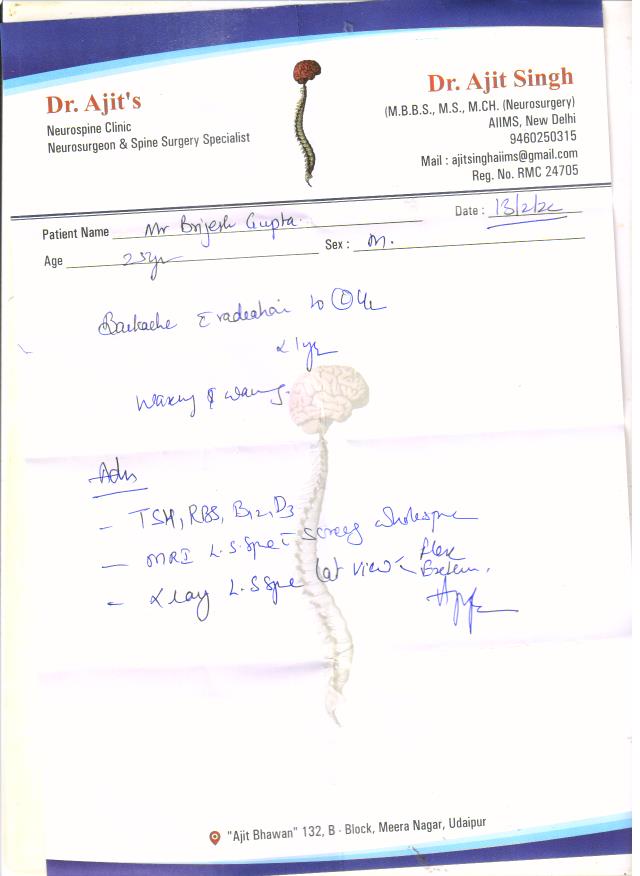 Dr. Ajit's
Neurospine Clinic
Neurosurgeon & Spine Surgery Specialist
Dr. Ajit Singh
(M.B.B.S., M.S., M.CH. (Neurosurgery)
AIIMS, New Delhi
9460250315
Mail : ajitsinghaiims@gmail.com
Reg. No. RMC 24705
Patient Name Mr Brijesh Gupta
Date : 13/2/22
Age 25yr
Sex : M.
Backache c̄ to
1yr
Waxing & waning
Adv
- TSH, RBS, B12, D3
- MRI L.S.Spine c̄ screeng wholespine
- Xray L.SSpine Lat view < flex
Extem.
"Ajit Bhawan" 132, B - Block, Meera Nagar, Udaipur